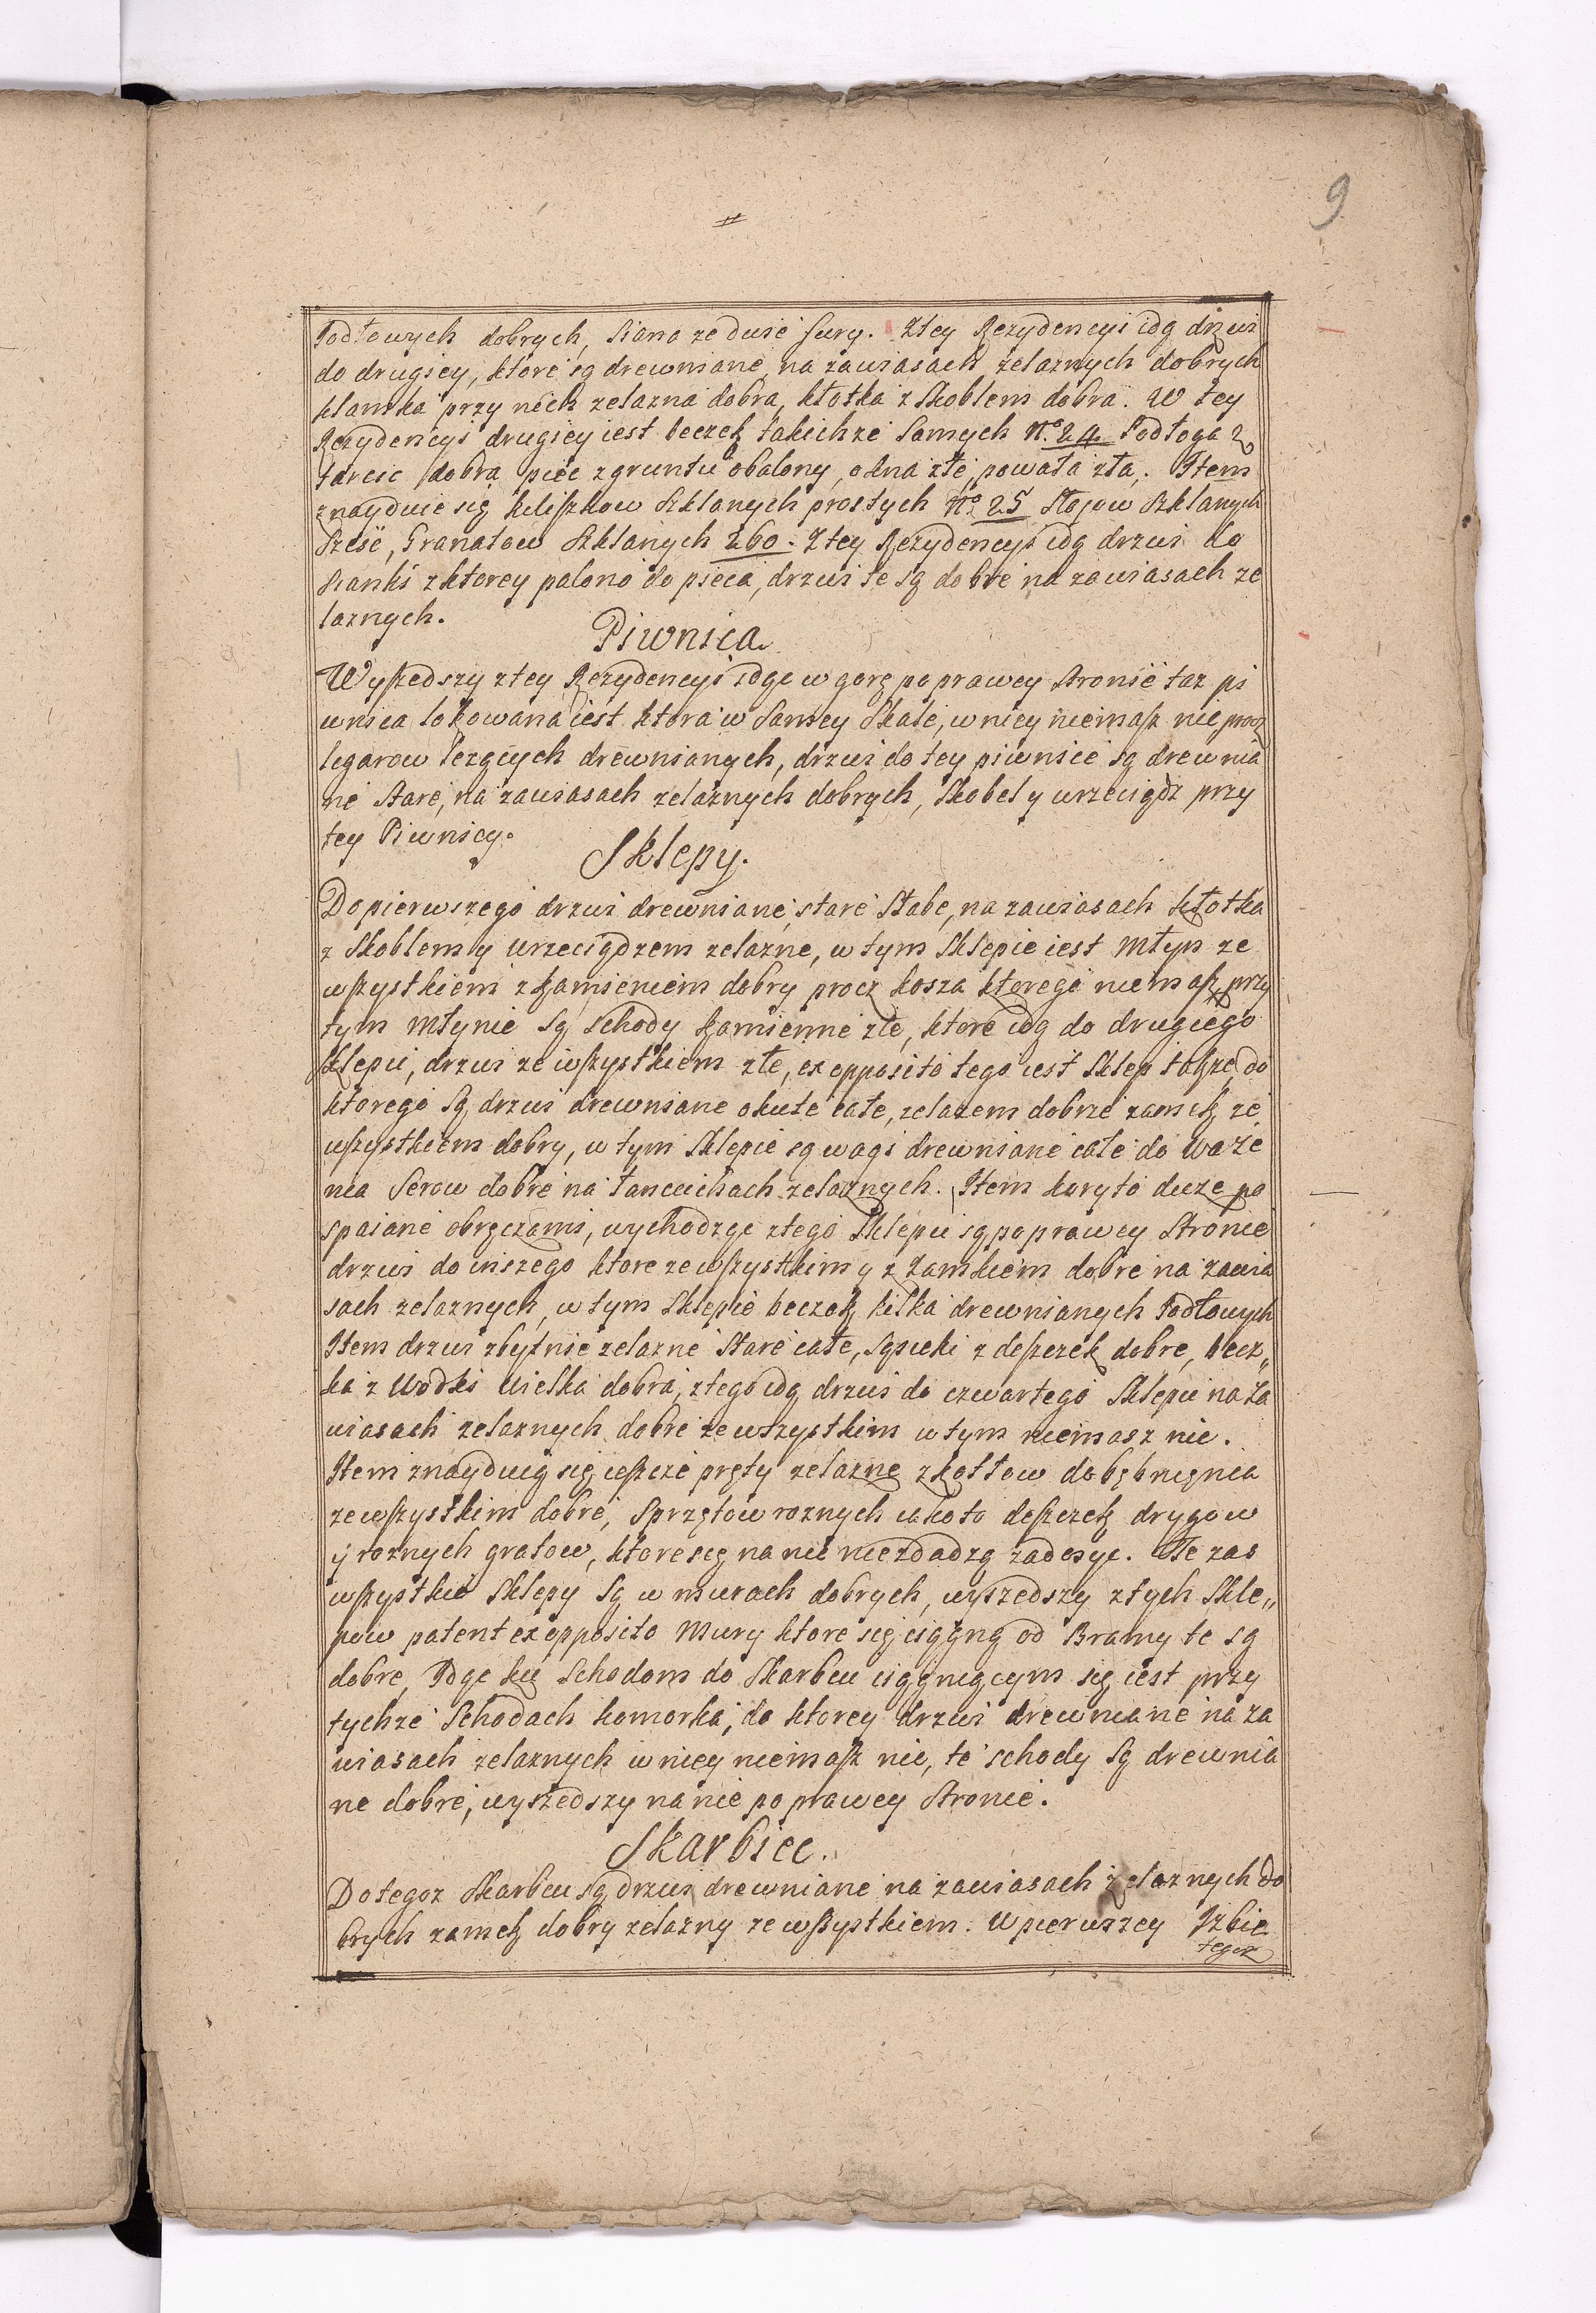 9
Jodłowych dobrych, siana ze dwie fury. Ztey Rezydencyi idą drzwi
do drugiey, ktore są drewniane, na zawiasach zelaznych dobrych
klamka przy nich zelazna dobra, kłotka z skoblem dobra. W tey
Rezydencyi drugiey iest beczek takichze samych No. 24. Podłoga z
tarcic dobra piec zgruntu obalony, okna złe, powała zła. Item
znayduie się kieliszkow szklanych prostych No. 25 słojow szklanych
sześć, Granatow szklanych 260. Ztey Rezydencyi idą drzwi do
sianki zktorey palono do pieca, drzwi te są dobre na zawiasach ze
laznych.
Piwnica.
Wyszedszy z tey Rezydencyi idąc w gorę po prawey stronie taz pi
wnica lokowana iest ktora w samey skale, w niey niemasz nic procz
legarow lezących drewnianych, drzwi do tey piwnice są drewnia
ne stare, na zawiasach zelaznych dobrych, skobel y wrzeciądz przy
tey Piwnicy.
Sklepy.
Do pierwszego drzwi drewniane, stare słabe, na zawiasach kłotka
z skoblem y wrzeciądzem zelazne, w tym sklepie iest młyn ze
wszystkiem z kamieniem dobry procz kosza ktorego niemasz, przy
tym młynie są schody kamienne złe, ktore idą do drugiego
sklepu, drzwi ze wszystkiem złe, ex opposito tego iest sklep takze do
ktorego są drzwi drewniane okute całe, zelazem dobrze zamek ze
wszystkiem dobry, w tym sklepie są wagi drewniane całe do waze
nia serow dobre na łancuchach zelaznych. Item koryto duze po
spaiane obręczami, wychodząc ztego sklepu są po prawey stronie
drzwi do inszego ktore ze wszystkim y z zamkiem dobre na zawia
sach zelaznych, w tym sklepie beczek kilka drewnianych Jodłowych
Item drzwi zbytnie zelazne stare całe, sąsieki z deszczek dobre, becz„
ka z wodki wielka dobra, ztego idą drzwi do czwartego sklepu na za
wiasach zelaznych dobre ze wszystkim w tym niemasz nic.
Item znayduią się ieszcze pręty zelazne zkotłow do bębnięnia
zewszystkim dobre, sprzętow roznych iako to deszczek drygow
y roznych gratow, ktore się na nic niezdadzą zadosyc. Te zas
wszystkie sklepy są w murach dobrych, wyszedszy z tych skle„
pow patent ex opposito mury ktore się ciągną od Bramy te są
dobre, Idąc ku schodom do skarbcu ciągnącym się iest przy
tychze schodach komorka, do ktorey drzwi drewniane na za
wiasach zelaznych w niey niemasz nic, te schody są drewnia
ne dobre, wyszedszy na nie po prawey stronie.
Skarbiec.
Do tegoz skarbcu są drzwi drewniane na zawiasach zelaznych do
brych zamek dobry zelazny ze wszystkiem. W pierwszey Izbie
tegoz